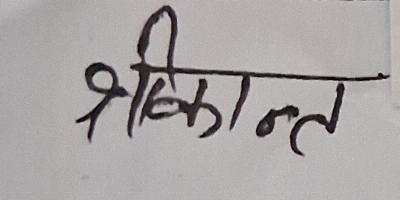 श्रीकान्त